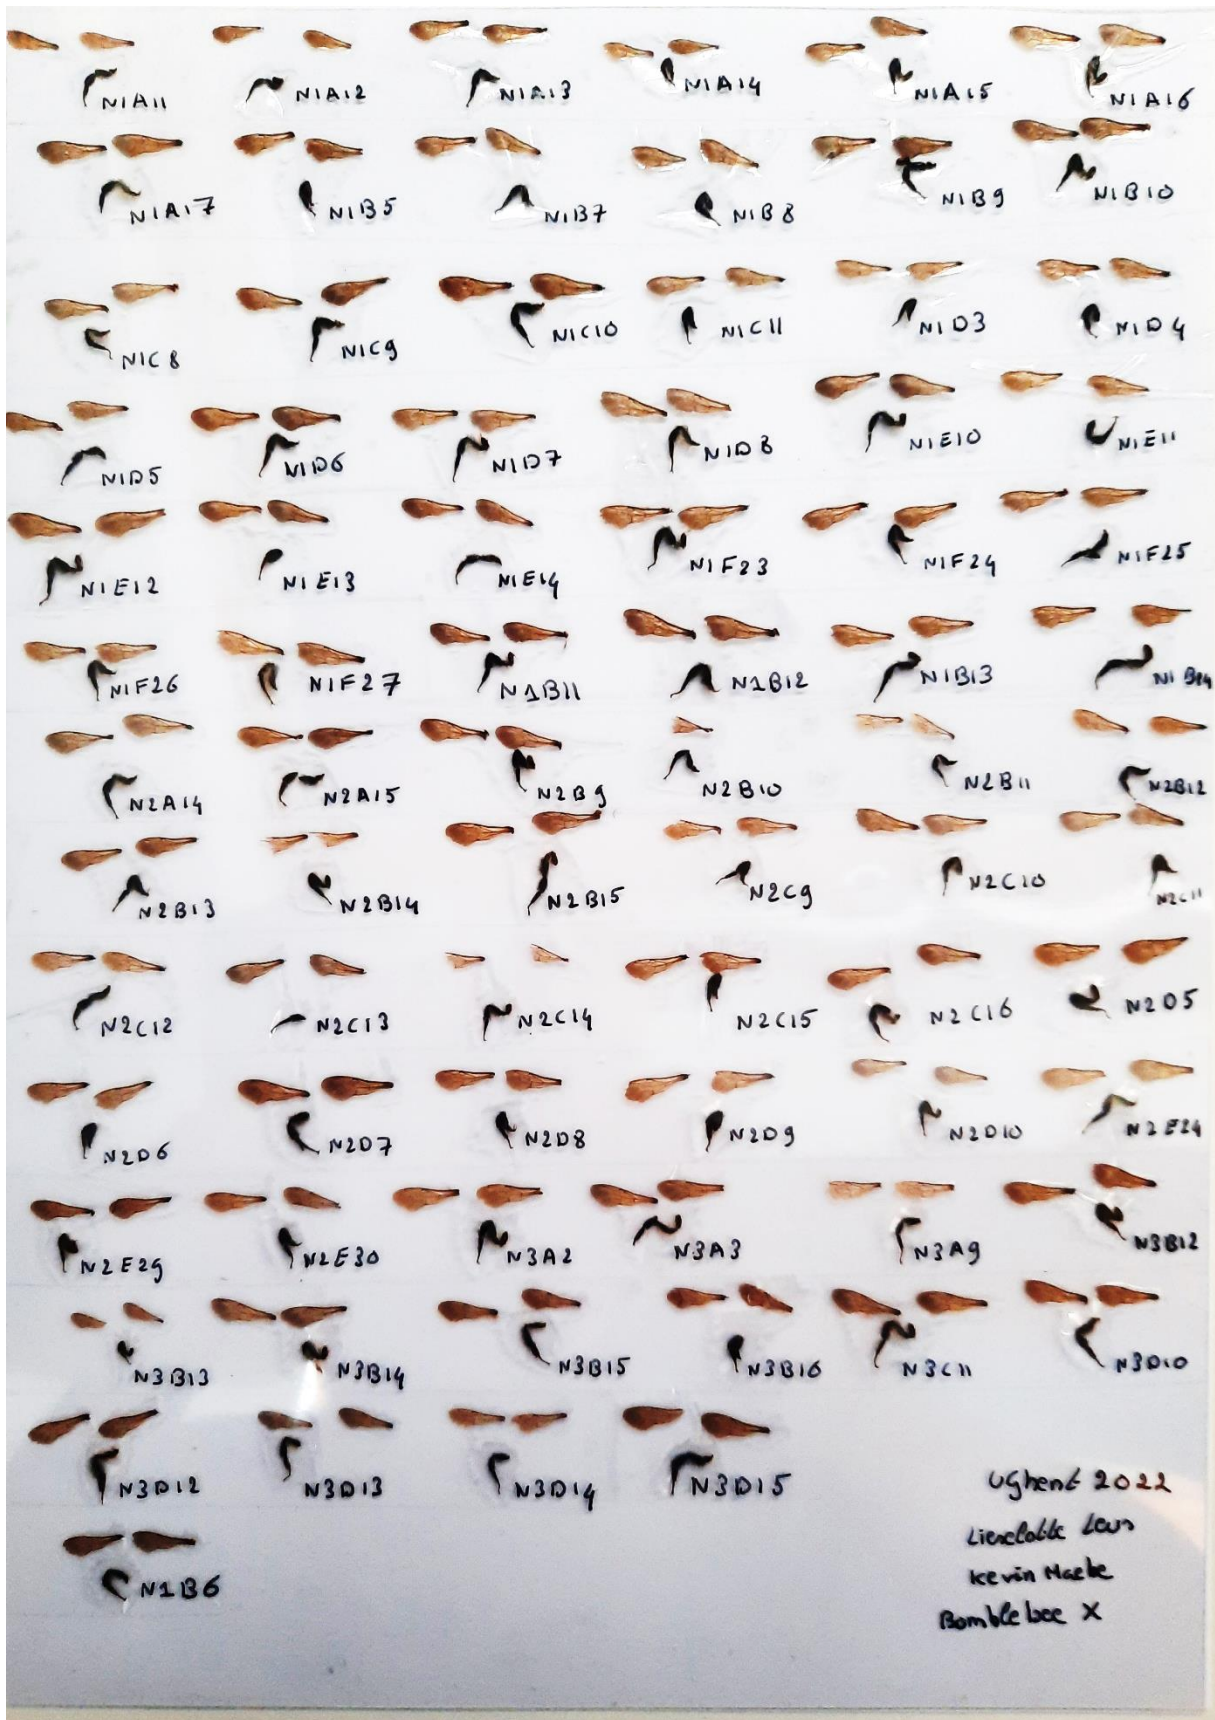 N1A11 N1A12 N1A13 N1A14 N1A15 N1A16
N1A17 N1B5 N1B7 N1B8 N1B9 N1B10
N1C8 N1C9 N1C10 N1C11 N1D3 N1D4
N1D5 N1D6 N1D7 N1D8 N1E10 N1E11
N1E12 N1E13 N1E14 N1F23 N1F24 N1F25
N1F26 N1F27 N1B11 N1B12 N1B13 N1B14
N2A14 N2A15 N2B9 N2B10 N2B11 N2B12
N2B13 N2B14 N2B15 N2C9 N2C10 N2C11
N2C12 N2C13 N2C14 N2C15 N2C16 N2D5
N2D6 N2D7 N2D8 N2D9 N2D10 N2E24
N2E29 N2E30 N3A2 N3A3 N3A9 N3B12
N3B13 N3B14 N3B15 N3B16 N3C11 N3D10
N3D12 N3D13 N3D14 N3D15
UGhent 2022
Lieselotte
Kevin Maebe
N1B6
Bomblebee X